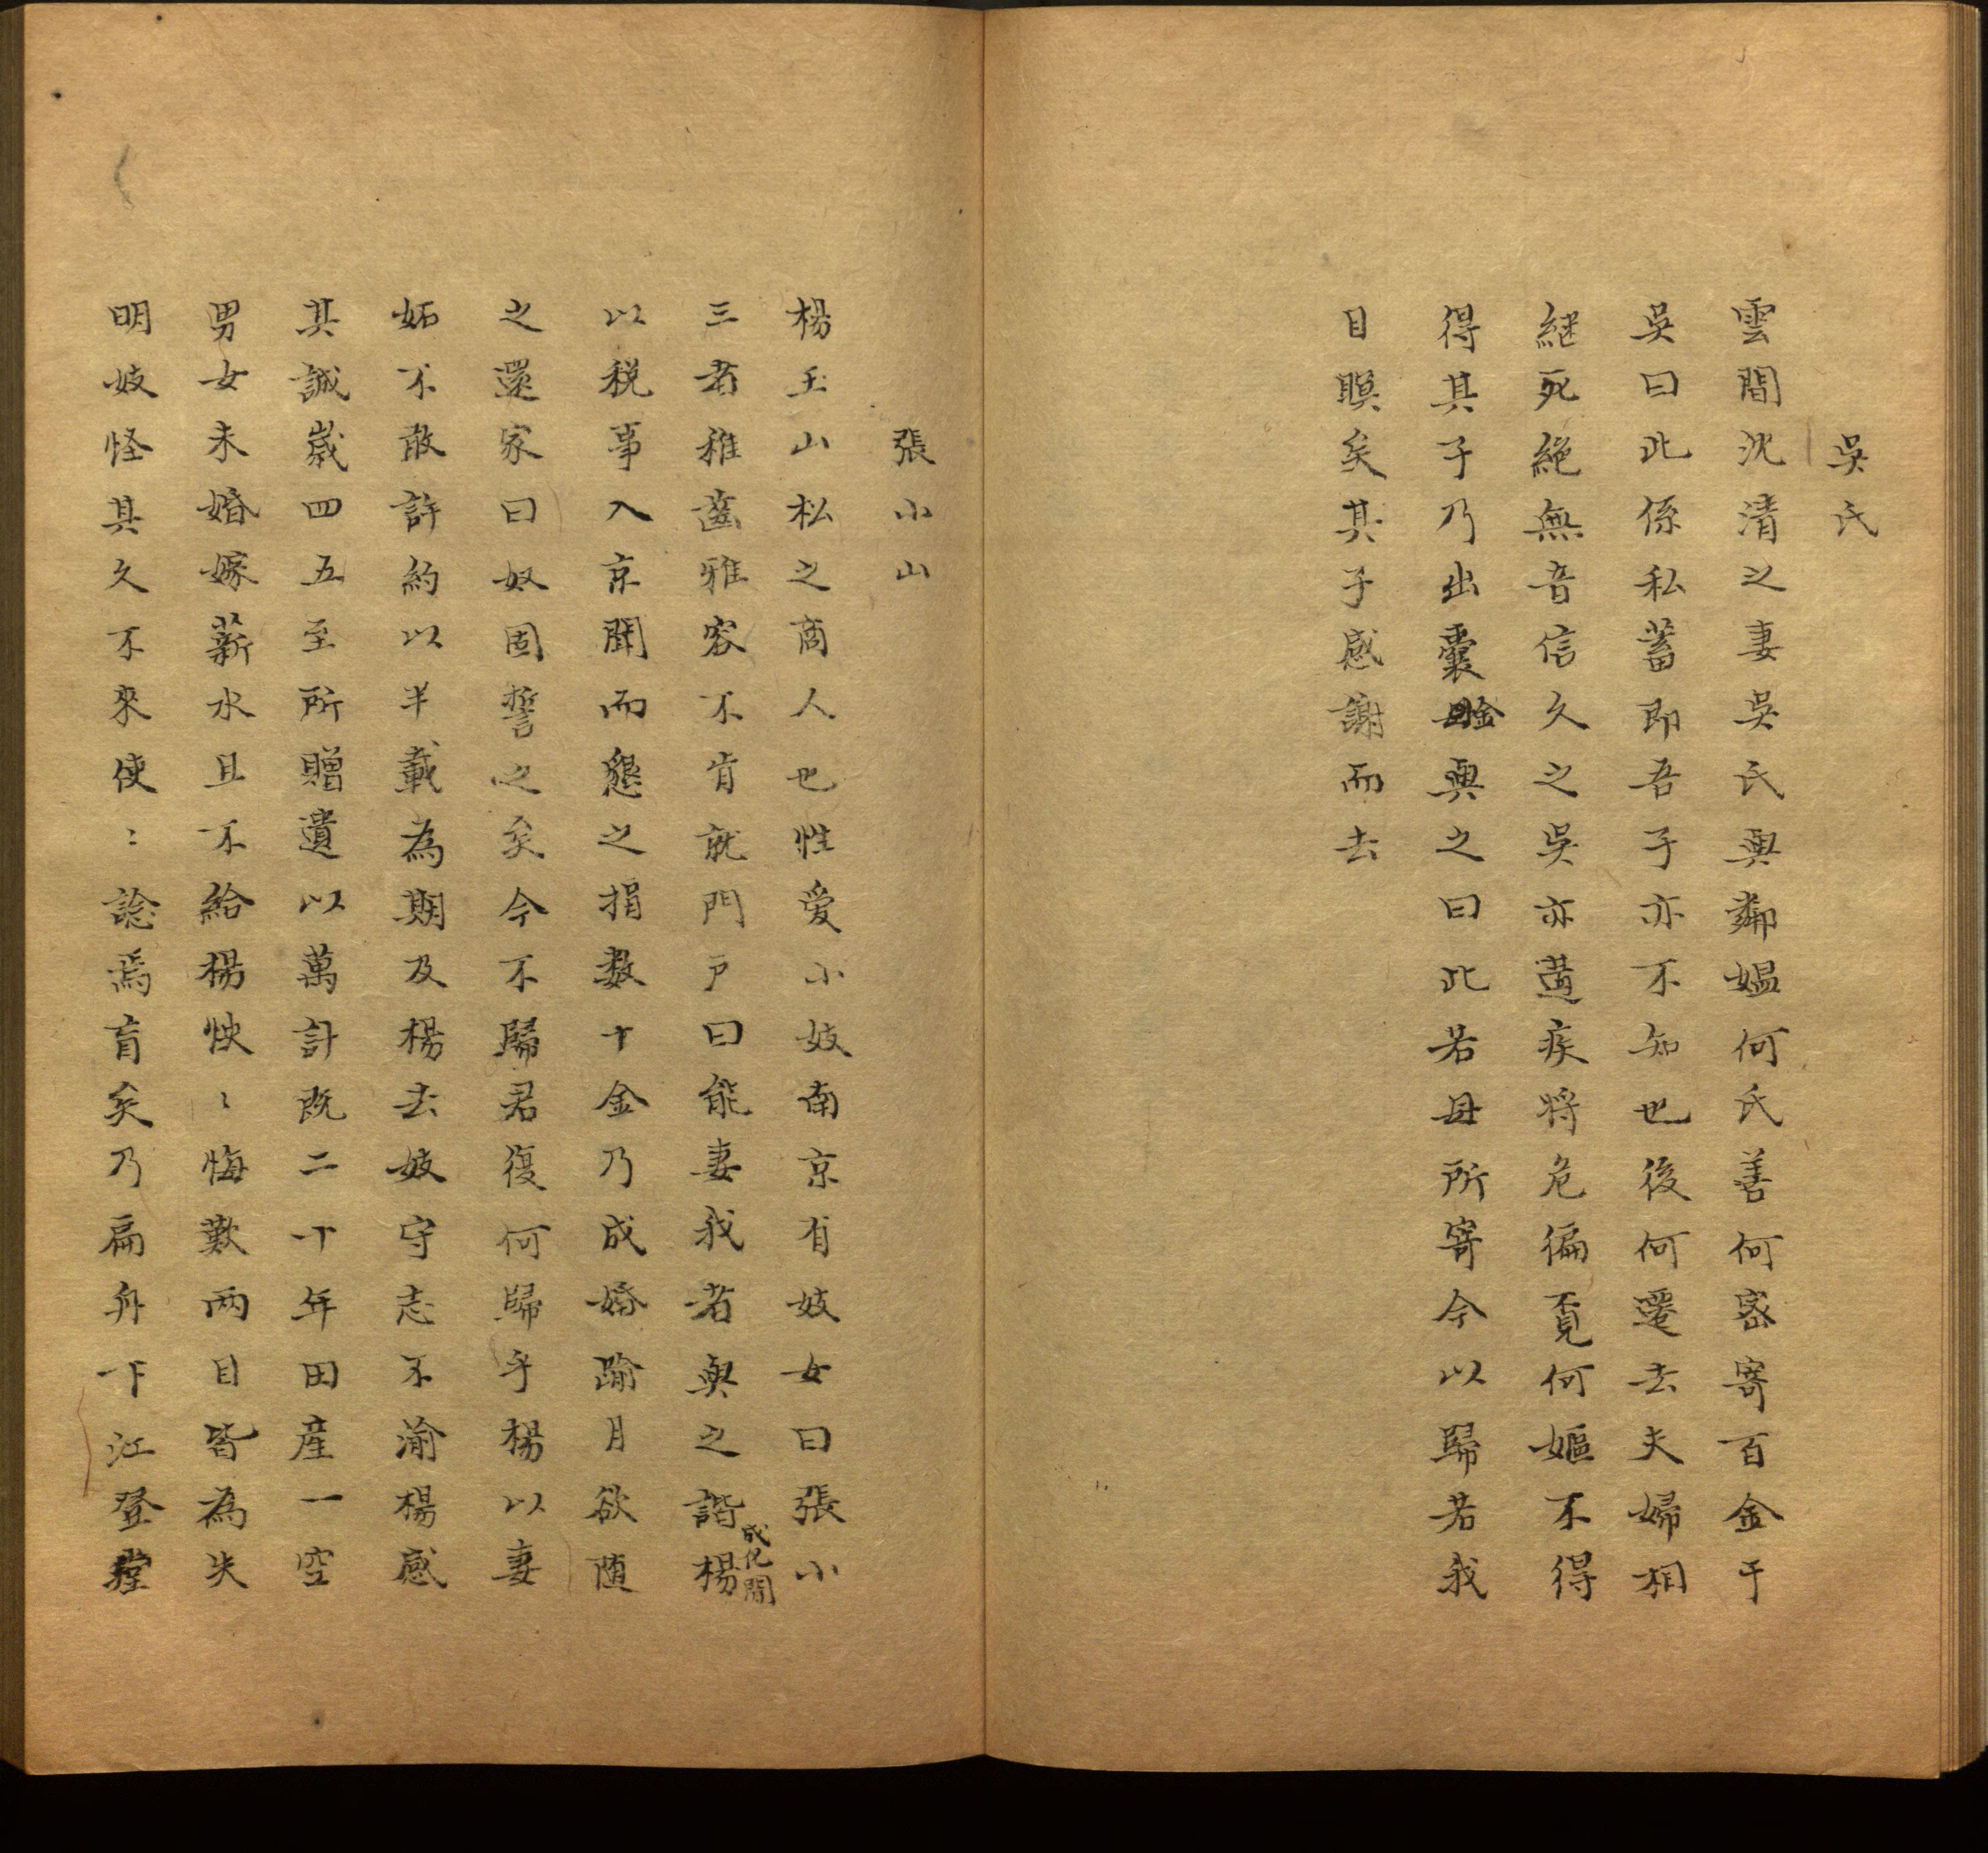 吳氏
雲間沈清之妻吳氏與鄰媼何氏善何密寄百金于
吳曰此係私蓄即吾子亦不知也後何遷去夫婦相
継死絶無音信久之吳亦遘疾將危偏覔何嫗不得
得其子乃出囊金與之曰此若母所寄今以歸若我
目瞑矣其子感謝而去
張小山
楊玉山松之商人也性愛小妓南京有妓女曰張小
三者稚齒雅容不肯就門戶曰能妻我者與之諧楊
成化間
以税事入京聞而懇之捐数十金乃成婚踰月欲随
之還家曰奴固誓之矣今不歸君復何歸乎楊以妻
妬不敢許約以半載為期及楊去妓守志不渝楊感
其誠嵗四五至所贈遺以萬計既二十年田産一空
男女未婚嫁薪水且不給楊怏〻悔歎两目皆為失
明妓怪其久不來使〻諗焉盲矣乃扁舟下江登堂